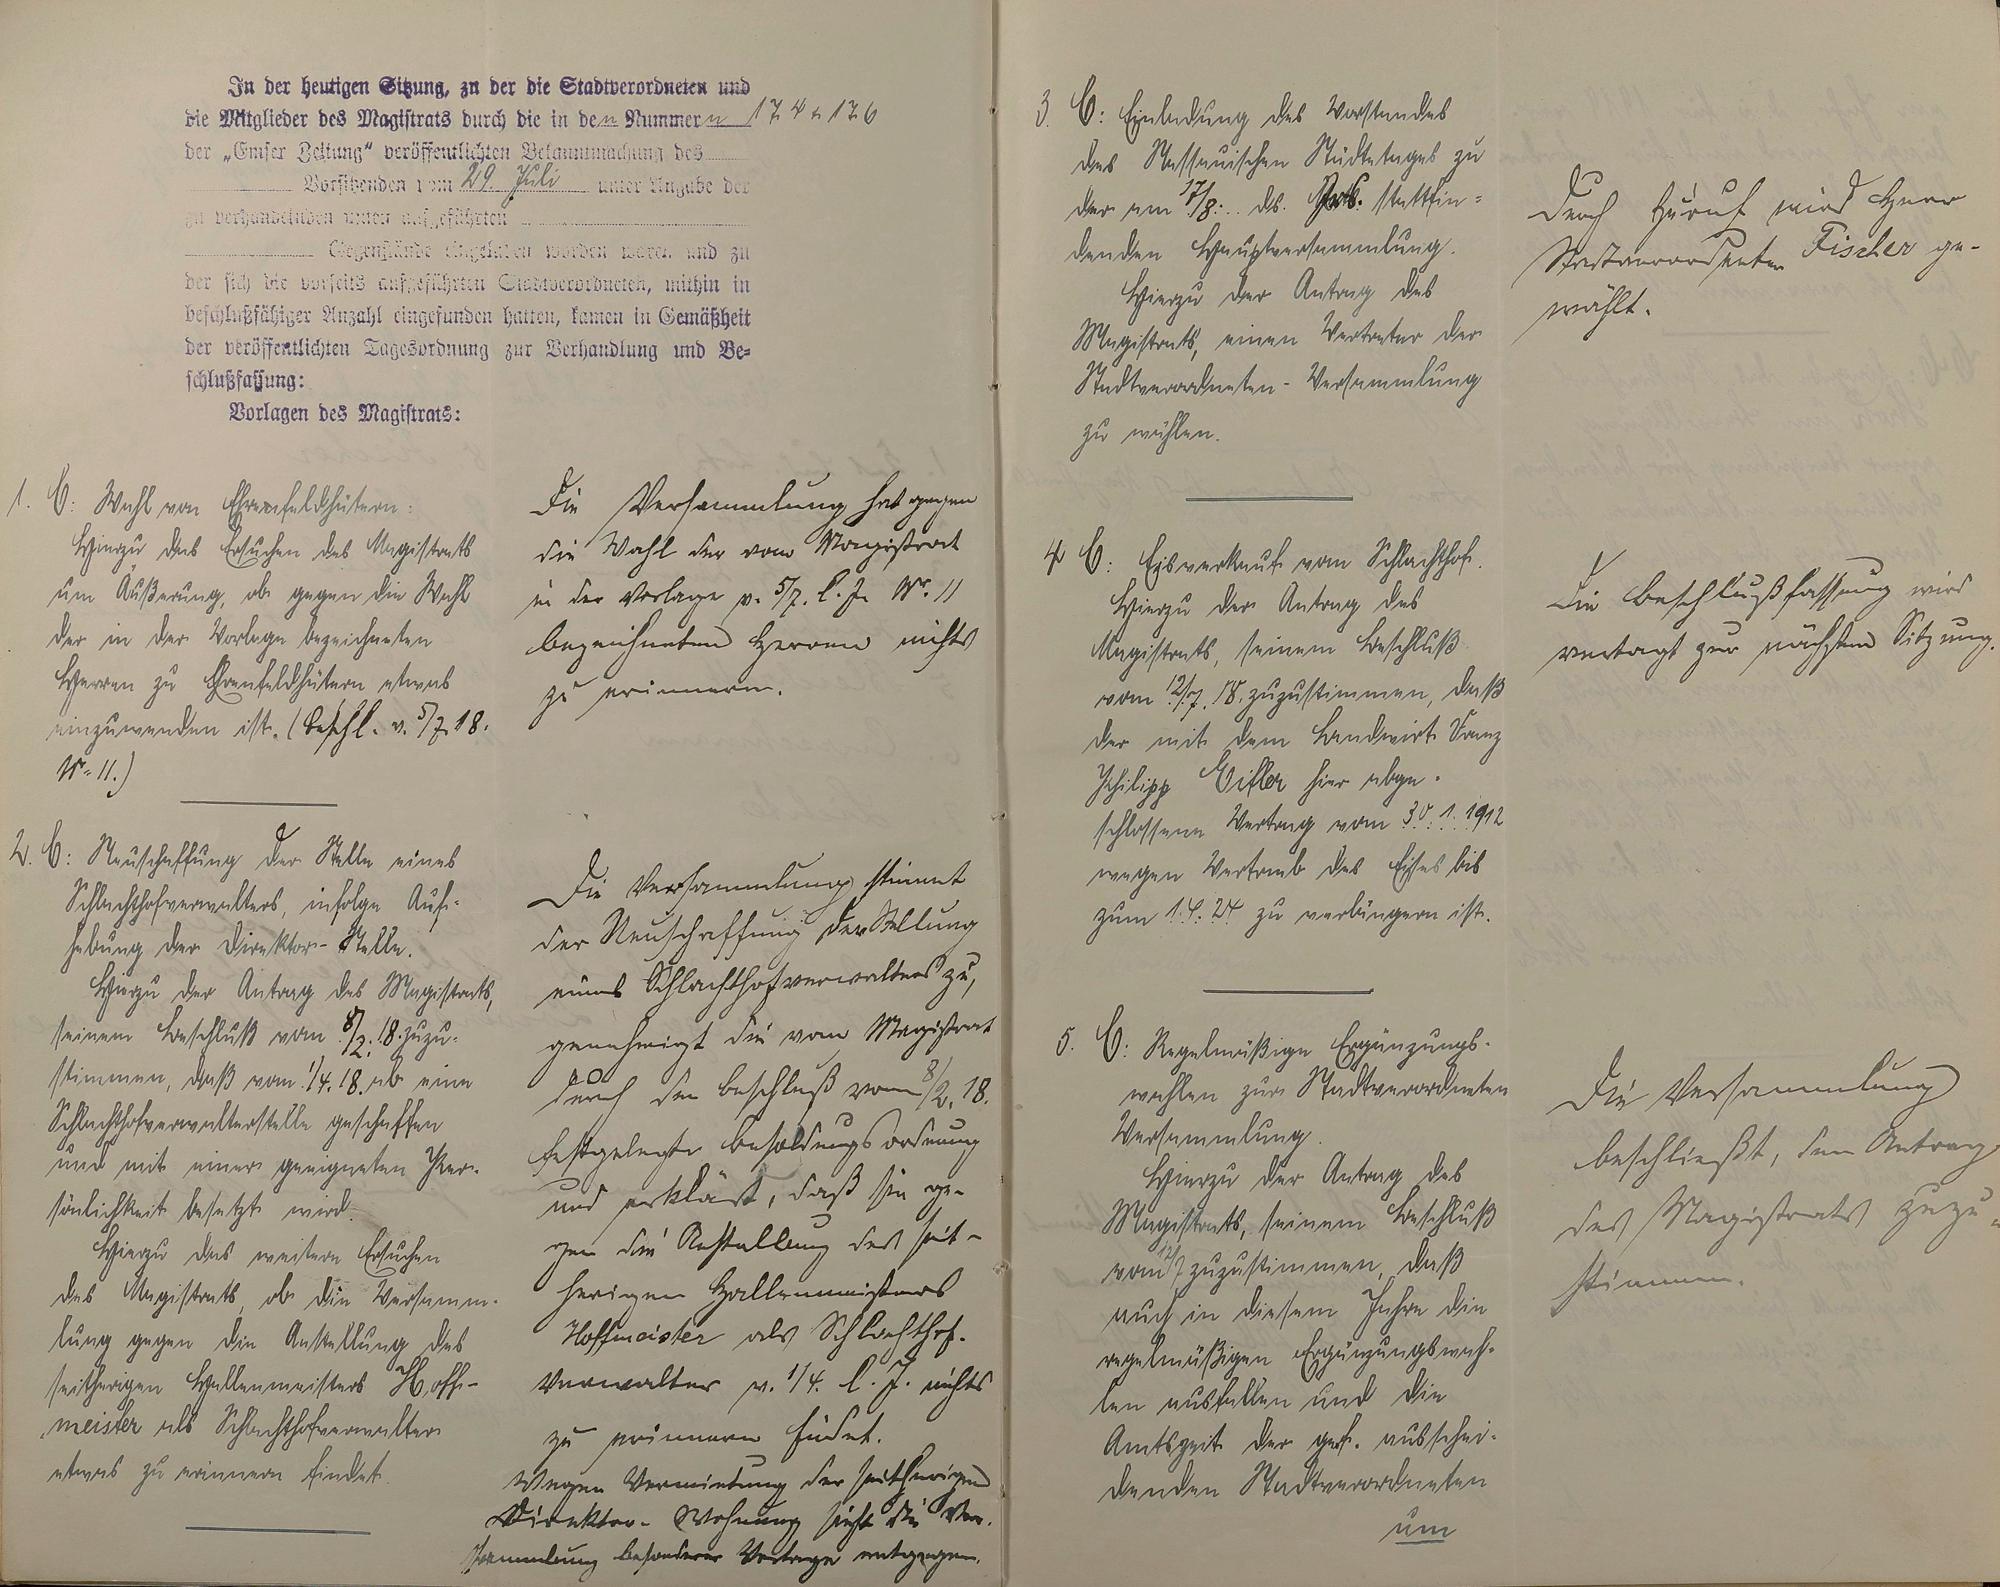 In der heutigen Sitzung, zu der die Stadtverordneten und
die Mitglieder des Magistrats durch die in den Nummern 174 u 176
der „Emser Zeitung" veröffentlichten Bekanntmachung des
Vorsitzenden vom 29. Juli unter Angabe der
zu verhandelnden unten aufgeführten
Gegenstände eingeladen worden waren und zu
der sich die vorseits aufgeführten Stadtverordneten, mithin in
beschlußfähiger Anzahl eingefunden hatten, kamen in Gemäßheit
der veröffentlichten Tagesordnung zur Verhandlung und Be-
schlußfassung:
Vorlagen des Magistrats:
1. C: Wahl von Ehrenfeldhütern:
Hierzu das Ersuchen des Magistrats
um Äußerung, ob gegen die Wahl
der in der Vorlage bezeichneten
Herren zu Ehrenfeldhütern etwas
einzuwenden ist. (Beschl. v. 5/7. 18.
Nr. 11.)
Die Versammlung hat gegen
die Wahl der vom Magistrat
in der Vorlage v. 5/7. l. J. Nr. 11
bezeichneten Herren nichts
zu erinnern.
2. C: Neuschaffung der Stelle eines
Schlachthofverwalters, infolge Auf-
hebung der Direktor-Stelle.
Hierzu der Antrag des Magistrats,
seinem Beschluß vom 8/2. 18. zuzu-
stimmen, daß vom 1/4. 18. ab eine
Schlachthofverwalterstelle geschaffen
und mit einer geeigneten Per-
sönlichkeit besetzt wird.
Hierzu das weitere Ersuchen
des Magistrats, ob die Versamm-
lung gegen die Anstellung des
seitherigen Hallenmeisters Hoff-
meister als Schlachthofverwalter
etwas zu erinnern findet.
Die Versammlung stimmt
der Neuschaffung der Stellung
eines Schlachthofverwalters zu,
genehmigt die vom Magistrat
durch den Beschluß vom 8/2. 18.
festgelegte Besoldungsordnung
und erklärt, daß sie ge-
gen die Anstellung des seit-
herigen Hallenmeisters
Hoffmeister als Schlachthof-
verwalter v. 1/4. l. J. nichts
zu erinnern findet.
Wegen Vermietung der seitherigen
Direktor-Wohnung sieht die Ver-
sammlung besonderer Vorlage entgegen.
3. C: Einladung des Vorstandes
des Nassauischen Städtetages zu
der am 17/8. ds. Jrs. stattfin-
denden Hauptversammlung.
Hierzu der Antrag des
Magistrats, einen Vertreter der
Stadtverordneten-Versammlung
zu wählen.
Durch Zuruf wird Herr
Stadtverordneter Fischer ge-
wählt.
4 C: Eisverkauf vom Schlachthof.
Hierzu der Antrag des
Magistrats, seinem Beschluß
vom 12/7. 18. zuzustimmen, daß
der mit dem Landwirt Franz
Philipp Eisler hier abge-
schlossene Vertrag vom 30.1.1912
wegen Vertrieb des Eises bis
zum 1.4.24 zu verlängern ist.
Die Beschlußfassung wird
vertagt zur nächsten Sitzung.
5. C: Regelmäßige Ergänzungs-
wahlen zur Stadtverordneten
Versammlung.
Hierzu der Antrag des
Magistrats, seinem Beschluß
vom 12/7 zuzustimmen, daß
auch in diesem Jahre die
regelmäßigen Ergänzungswah-
len ausfallen und die
Amtszeit der ges. ausschei-
denden Stadtverordneten
um
Die Versammlung
beschließt, dem Antrag
des Magistrats zuzu-
stimmen.